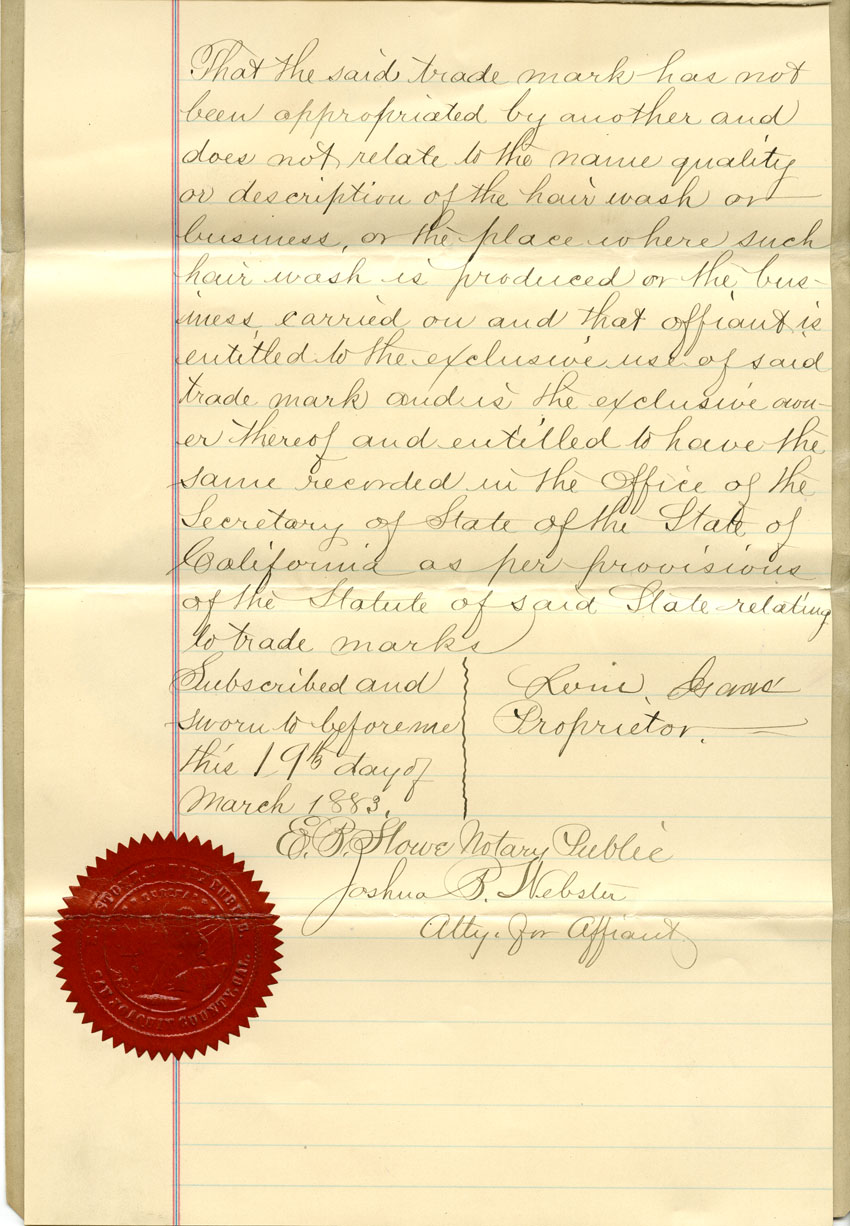 That the said trade mark has not
been appropriated by another and
does not relate to the name quality
or description of the hair wash or
business, or the place where such
hair wash is produced or the bus-
iness carried on and that affiant is
entitled to the exclusive use of said
trade mark and is the exclusive own-
er thereof and entitled to have the
same recorded in the Office of the
Secretary of State of the State of
California as per provisions
of the Statute of said State relating
to trade marks
Subscribed and
sworn to before me
this 19th day of
March 1883.
Isaac
Proprietor.
E. P. Stowe Notary Public
Joshua B. Webster
Atty. for Affiant
SAN JOAQUIN COUNTY, CAL.